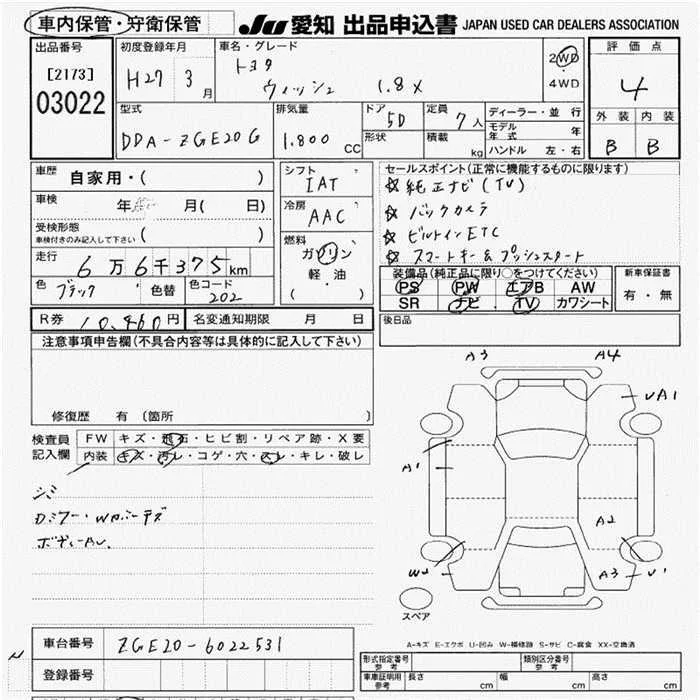 車内保管・守衛保管 JU 愛知 出品申込書 JAPAN USED CAR DEALERS ASSOCIATION
出品番号 初度登録年月 車名・グレード 評価点
[2173] H27 3月 トヨタ 2WD
03022 ウィッシュ 1.8X 4WD 4
型式 排気量 ドア 5D 定員 7人 ディーラー・並行 外装 内装
DBA-ZGE20G 1.800CC 形状 積載 kg モデル年式 年 B B
ハンドル 左・右
車歴 自家用・( ) シフト IAT セールスポイント(正常に機能するものに限ります)
車検 年 月( 日) 冷房 AAC ☆ 純正ナビ(TV)
受検形態 ( ) ☆ バックカメラ
車検付きのみ記入して下さい 燃料 ☆ ビルトインETC
走行 6万6千375km ガソリン ☆ スマートキー&プッシュスタート
色 ブラック 色替 色コード 202 軽・油 ( ) 装備品(純正品に限り○をつけてください) 新車保証書
PS PW エアB AW 有・無
SR ナビ TV カワシート
R券 10,460円 名変通知期限 月 日 後日品
注意事項申告欄(不具合内容等は具体的に記入して下さい)
A3 A4
UA1
修復歴 有 (箇所
検査員 FW キズ・飛石・ヒビ割・リペア跡・X要
記入欄 内装 キズ・汚レ・コゲ・穴・スレ・キレ・破レ
A1
シミ
A2
ボディー
A3 U1
スペア
A-キズ E-エクボ U-凹み W-補修跡 S-サビ C-腐食 XX-交換済
車台番号 ZGE20-6022531
登録番号
形式指定番号 参考 類別区分番号 参考
車庫証明用 参考 長さ cm 幅 cm 高さ cm